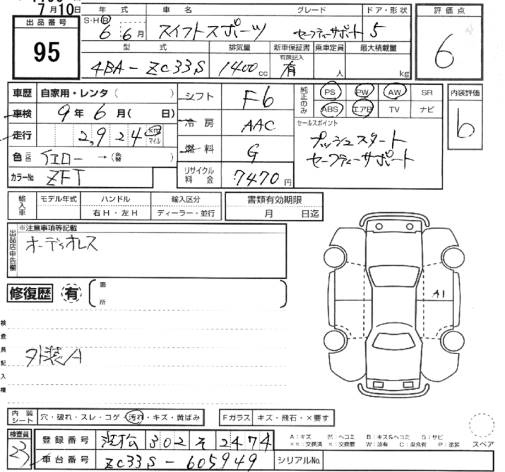 7月10日
出品番号 年 式 車 名 グレード ドア・形状 評価点
95
S・H・R 6年 6月 スイフトスポーツ セーフティサポート 5 6
型 式 排気量 新車保証書 乗車定員 最大積載量
有無記入
4BA-ZC33S 1400cc 有 人 kg
車歴 自家用・レンタ( ) シフト F6 純正のみ PS PW AW SR 内装評価
車検 9年 6月(日) 冷房 AAC ABS エアB TV ナビ b
走行 2,924 km マイル 燃料 G セールスポイント
プッシュスタート
セーフティーサポート
色 イエロー→ リサイクル料金 7470円
カラーNo ZFT
輸入車 モデル年式 ハンドル 輸入区分 書類有効期限
右H・左H ディーラー・並行 月 日迄
出品店申告欄 ※注意事項等記載
オーディオレス
修復歴 有 箇所
A1
検査員記入欄
外装A
内装シート 穴・破れ・スレ・コゲ 汚れ・キズ・黄ばみ Fガラス キズ・飛石・×要す
検査員 登録番号 浜松 302 そ 2474
23 車台番号 ZC33S-605949 シリアルNo
スペア